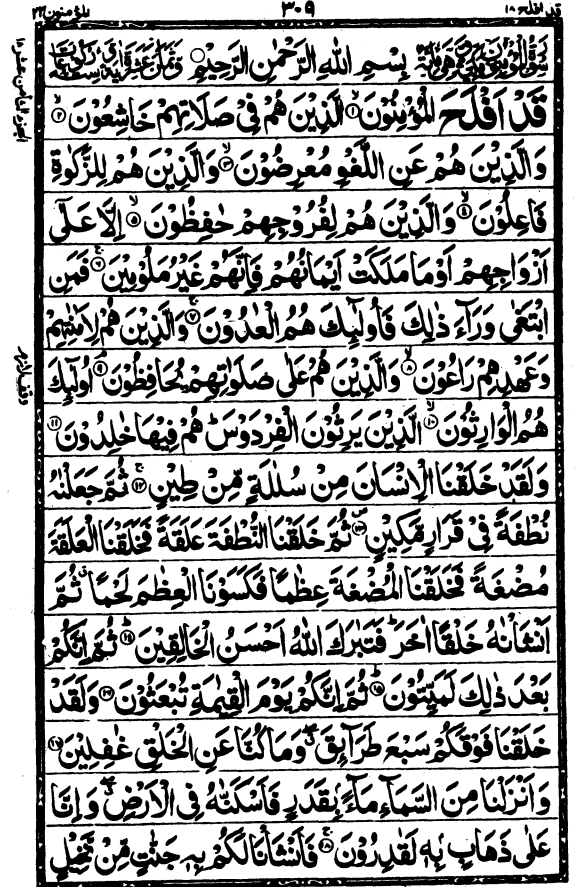 قد افلح ١٨
٣٠٩
المؤمنون ٢٣
بِسْمِ اللّٰهِ الرَّحْمٰنِ الرَّحِيْمِ
قَدْ اَفْلَحَ الْمُؤْمِنُوْنَ ۙ﴿۱﴾ الَّذِيْنَ هُمْ فِيْ صَلَاتِهِمْ خَاشِعُوْنَ ۙ﴿۲﴾
وَالَّذِيْنَ هُمْ عَنِ اللَّغْوِ مُعْرِضُوْنَ ۙ﴿۳﴾ وَالَّذِيْنَ هُمْ لِلزَّكٰوةِ
فَاعِلُوْنَ ۙ﴿۴﴾ وَالَّذِيْنَ هُمْ لِفُرُوْجِهِمْ حٰفِظُوْنَ ۙ﴿۵﴾ اِلَّا عَلٰٓى
اَزْوَاجِهِمْ اَوْ مَا مَلَكَتْ اَيْمَانُهُمْ فَاِنَّهُمْ غَيْرُ مَلُوْمِيْنَ ۚ﴿۶﴾ فَمَنِ
ابْتَغٰى وَرَآءَ ذٰلِكَ فَاُولٰٓئِكَ هُمُ الْعٰدُوْنَ ۚ﴿۷﴾ وَالَّذِيْنَ هُمْ لِاَمٰنٰتِهِمْ
وَعَهْدِهِمْ رَاعُوْنَ ۙ﴿۸﴾ وَالَّذِيْنَ هُمْ عَلٰى صَلَوٰتِهِمْ يُحَافِظُوْنَ ۘ﴿۹﴾ اُولٰٓئِكَ
هُمُ الْوَارِثُوْنَ ۙ﴿۱۰﴾ الَّذِيْنَ يَرِثُوْنَ الْفِرْدَوْسَ ؕ هُمْ فِيْهَا خٰلِدُوْنَ ﴿۱۱﴾
وَلَقَدْ خَلَقْنَا الْاِنْسَانَ مِنْ سُلٰلَةٍ مِّنْ طِيْنٍ ۚ﴿۱۲﴾ ثُمَّ جَعَلْنٰهُ
نُطْفَةً فِيْ قَرَارٍ مَّكِيْنٍ ۪﴿۱۳﴾ ثُمَّ خَلَقْنَا النُّطْفَةَ عَلَقَةً فَخَلَقْنَا الْعَلَقَةَ
مُضْغَةً فَخَلَقْنَا الْمُضْغَةَ عِظٰمًا فَكَسَوْنَا الْعِظٰمَ لَحْمًا ۗ ثُمَّ
اَنْشَاْنٰهُ خَلْقًا اٰخَرَ ؕ فَتَبٰرَكَ اللّٰهُ اَحْسَنُ الْخَالِقِيْنَ ؕ﴿۱۴﴾ ثُمَّ اِنَّكُمْ
بَعْدَ ذٰلِكَ لَمَيِّتُوْنَ ؕ﴿۱۵﴾ ثُمَّ اِنَّكُمْ يَوْمَ الْقِيٰمَةِ تُبْعَثُوْنَ ﴿۱۶﴾ وَلَقَدْ
خَلَقْنَا فَوْقَكُمْ سَبْعَ طَرَآئِقَ ۖ وَمَا كُنَّا عَنِ الْخَلْقِ غٰفِلِيْنَ ﴿۱۷﴾
وَاَنْزَلْنَا مِنَ السَّمَآءِ مَآءً بِقَدَرٍ فَاَسْكَنّٰهُ فِي الْاَرْضِ ۖ وَاِنَّا
عَلٰى ذَهَابٍ بِهٖ لَقٰدِرُوْنَ ۚ﴿۱۸﴾ فَاَنْشَاْنَا لَكُمْ بِهٖ جَنّٰتٍ مِّنْ نَّخِيْلٍ